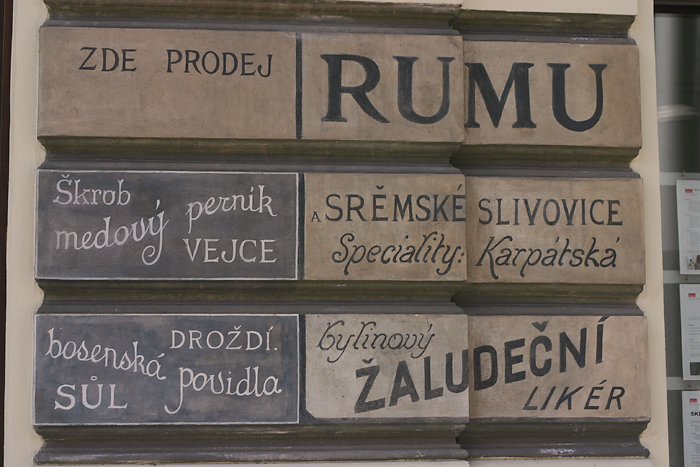 ZDE PRODEJ RUMU
Škrob
medový perník
VEJCE
A SRĚMSKÉ SLIVOVICE
Speciality: Karpátská
DROŽDÍ.
bosenská povidla
SŮL
bylinový
ŽALUDEČNÍ
LIKÉR